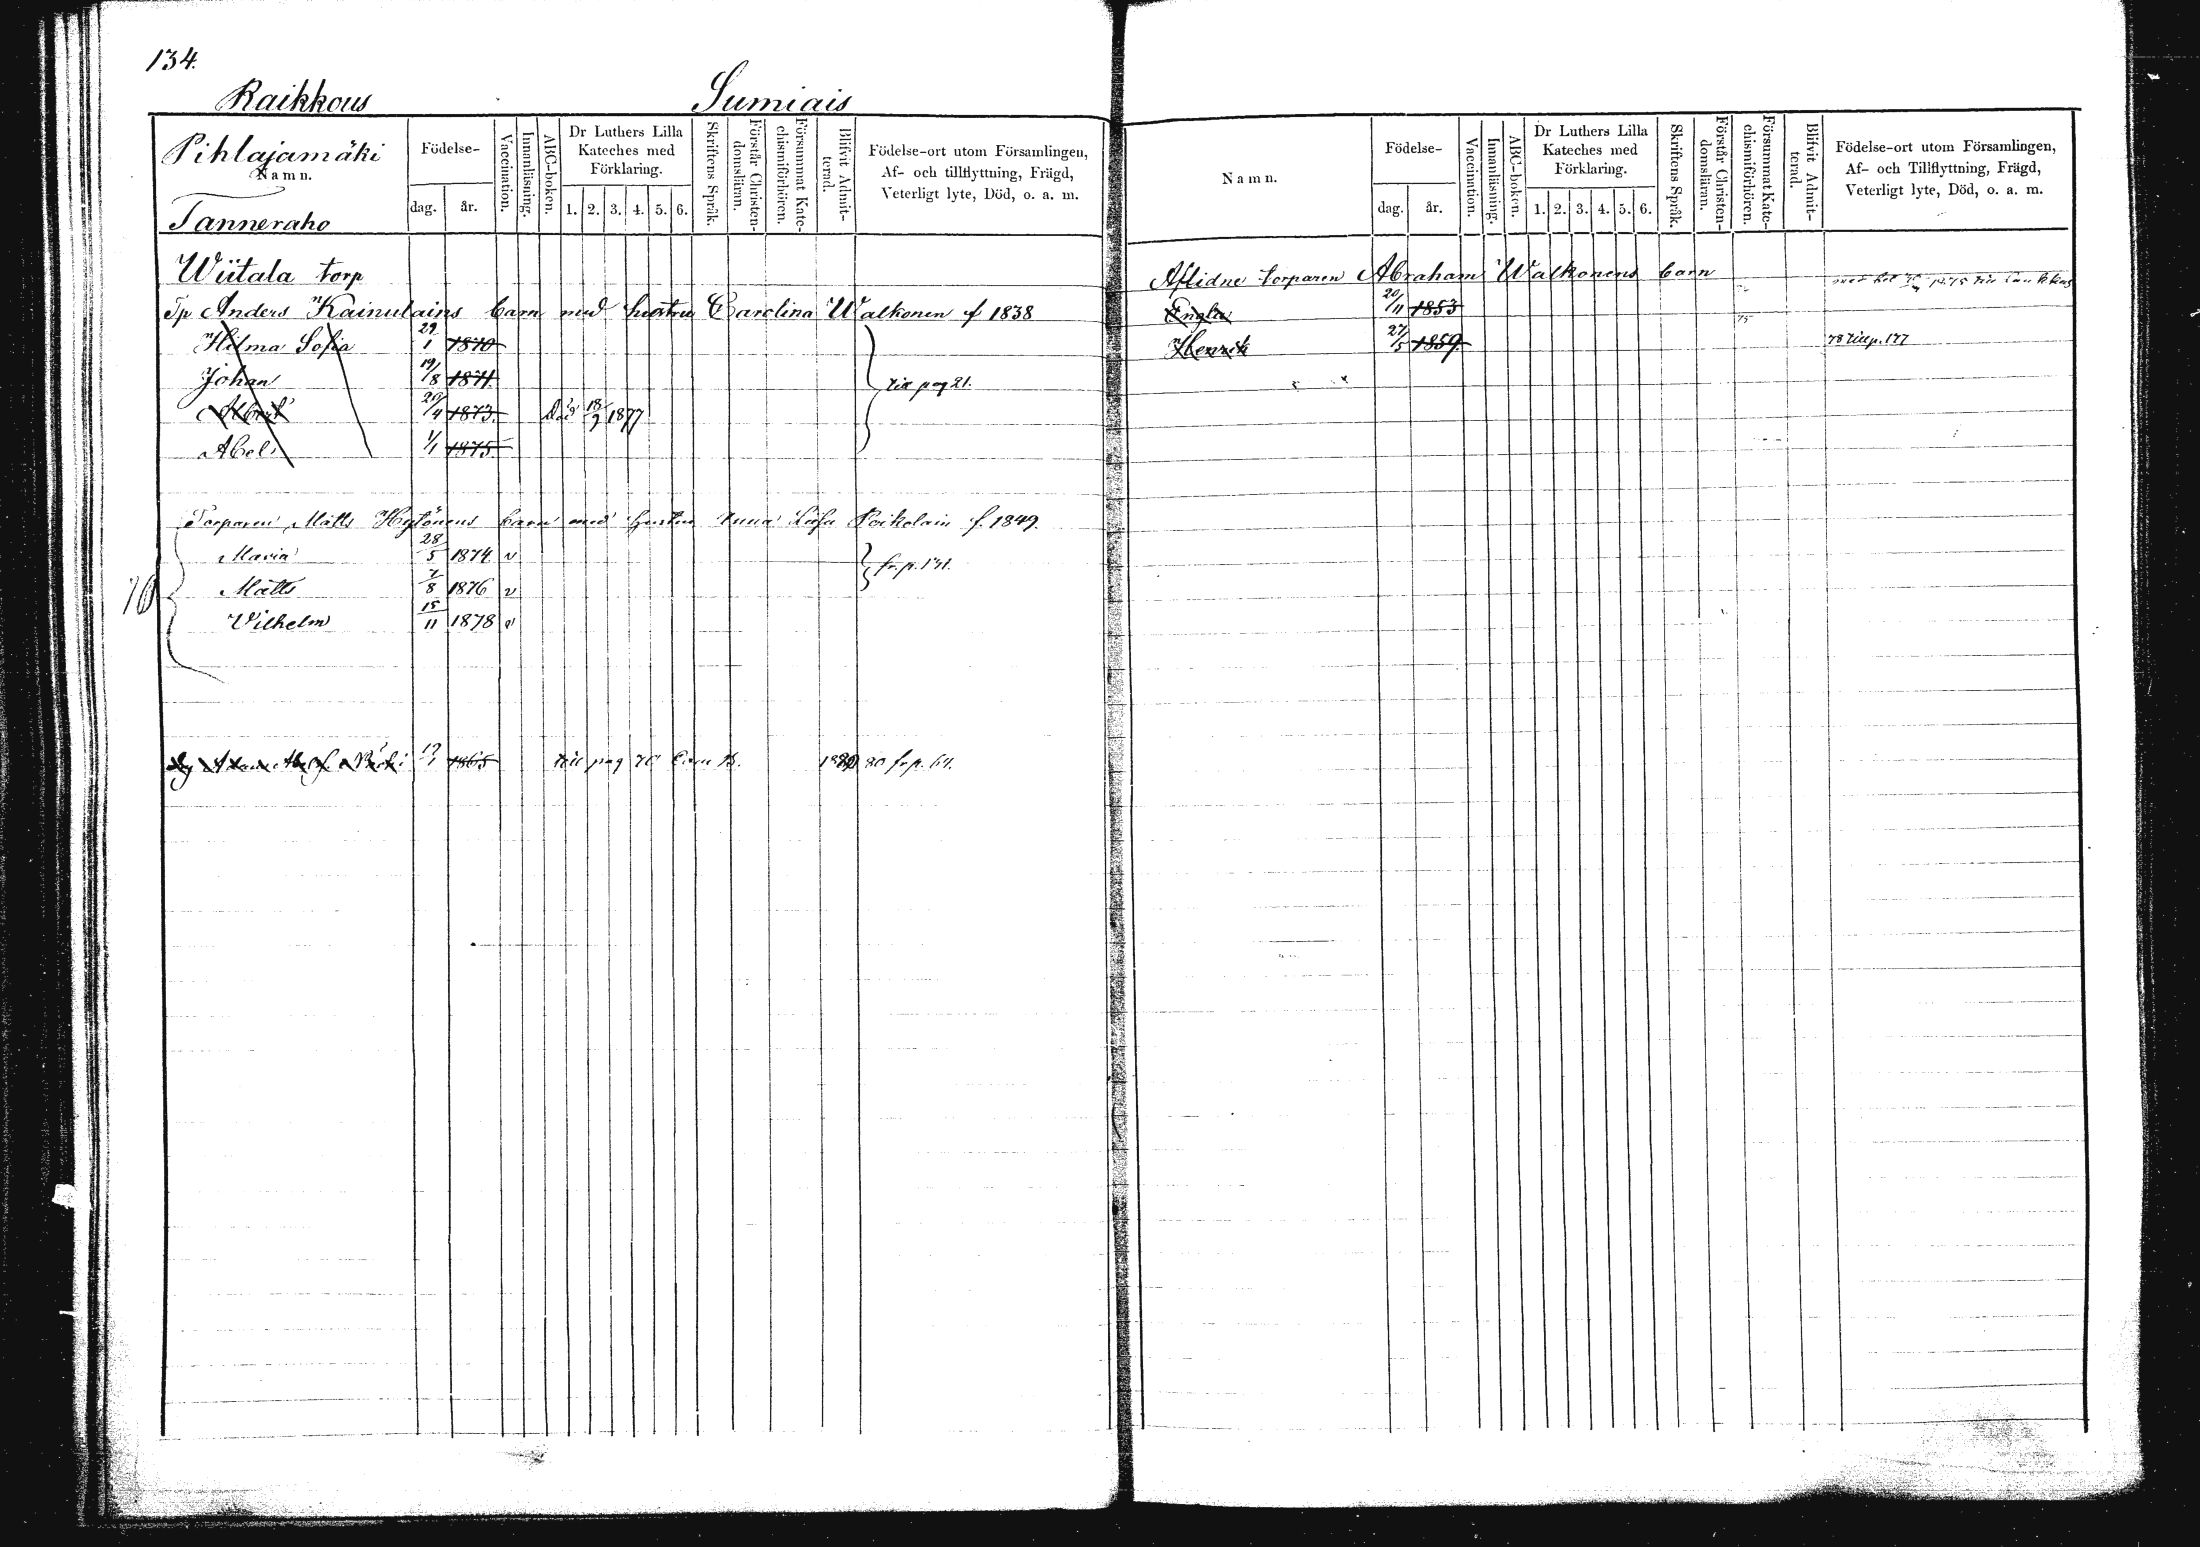 134.
Raikkous Sumiais
Pihlajamäki
Namn.
Tanneraho
Födelse-
dag. år.
Vaccination.
Innanläsning.
ABC-boken.
Dr Luthers Lilla
Kateches med
Förklaring.
1. 2. 3. 4. 5. 6.
Skriftens Språk.
Förstår Christen-
domsläran.
Försummat Kate-
chismiförhören.
Blifvit Admit-
terad.
Födelse-ort utom Församlingen,
Af- och tillflyttning, Frägd,
Veterligt lyte, Död, o. a. m.
Wiitala torp
Tp Anders Kainulains barn med hustru Carolina Walkonen f 1838
Hilma Sofia 29/1 1870
Johan 19/8 1871 till pag 21.
Albert 20/4 1873. Död 18/9 1877
Abel 1/1 1875
Torparen Matts Hytönens barn med hustru Anna Lisa Poikolain f. 1849.
Maria 28/5 1874 v fr. p. 131.
Matts 7/8 1876 v
Vilhelm 15/11 1878 v
1865 till pag 70 1880 80 fr p. 64.
Namn.
Födelse-
dag. år.
Vaccination.
Innanläsning.
ABC-boken.
Dr Luthers Lilla
Kateches med
Förklaring.
1. 2. 3. 4. 5. 6.
Skriftens Språk.
Förstår Christen-
domsläran.
Försummat Kate-
chismiförhören.
Blifvit Admit-
terad.
Födelse-ort utom Församlingen,
Af- och Tillflyttning, Frägd,
Veterligt lyte, Död, o. a. m.
Aflidne torparen Abraham Walkonens barn
Engla 20/11 1853
75
Henrik 27/5 1859. 78 till p. 177